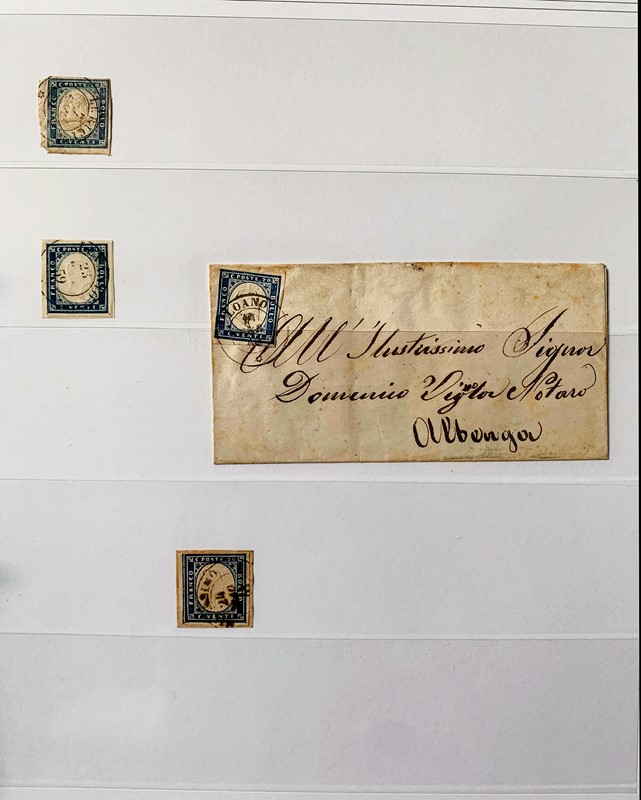 C. POSTE
FRANCO
BOLLO
C. VENTI
C. POSTE 20
FRANCO
BOLLO
C. VENTI
C. POSTE 20
FRANCO
BOLLO
C. VENTI
LOANO
All' Illustrissimo Signor
Domenico Notaro
Albenga
C. POSTE 20
FRANCO
BOLLO
C. VENTI